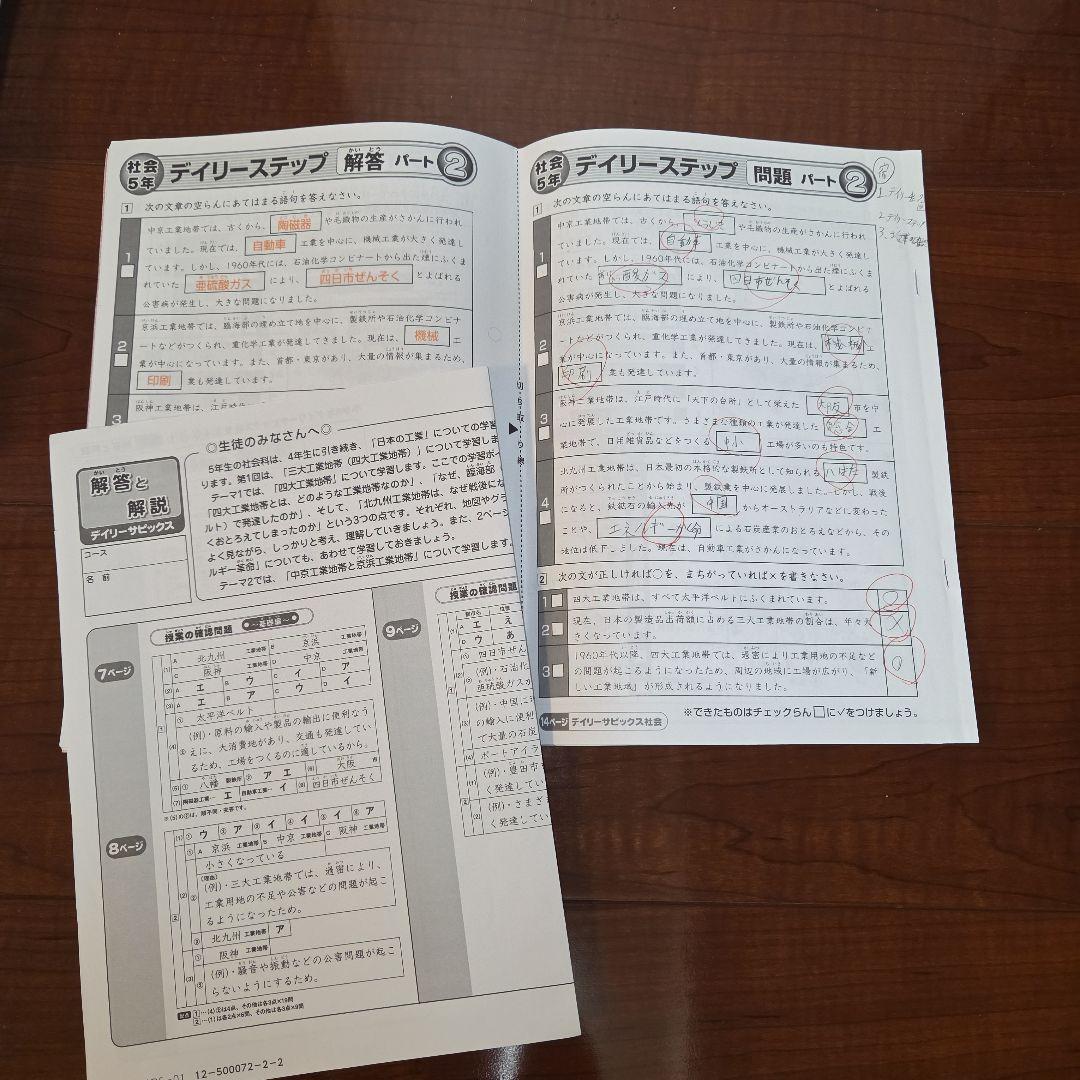 社会
5年
デイリーステップ 解答 パート 2
1 次の文章の空らんにあてはまる語句を答えなさい。
1
中京工業地帯では、古くから、 陶磁器 や毛織物の生産がさかんに行われ
ていました。現在では、 自動車 工業を中心に、機械工業が大きく発達し
ています。しかし、1960年代には、石油化学コンビナートから出た煙にふくま
れていた 亜硫酸ガス により、 四日市ぜんそく とよばれる
公害病が発生し、大きな問題になりました。
2
京浜工業地帯では、臨海部の埋め立て地を中心に、製鉄所や石油化学コンビナ
ートなどがつくられ、重化学工業が発達してきました。現在は、 機械 工
業が中心になっています。また、首都・東京があり、大量の情報が集まるため、
印刷 業も発達しています。
3
阪神工業地帯は、江戸時代に
社会
5年
デイリーステップ 問題 パート 2
1 次の文章の空らんにあてはまる語句を答えなさい。
1
中京工業地帯では、古くから、 や毛織物の生産がさかんに行われ
ていました。現在では、 自動車 工業を中心に、機械工業が大きく発達し
ています。しかし、1960年代には、石油化学コンビナートから出た煙にふくま
れていた 酸ガス により、 四日市ぜんそく とよばれる
公害病が発生し、大きな問題になりました。
2
京浜工業地帯では、臨海部の埋め立て地を中心に、製鉄所や石油化学コンビナ
ートなどがつくられ、重化学工業が発達してきました。現在は、 機械 工
業が中心になっています。また、首都・東京があり、大量の情報が集まるため、
印刷 業も発達しています。
3
阪神工業地帯は、江戸時代に「天下の台所」として栄えた 大阪 市を中
心に発展した工業地帯です。さまざまな種類の工業が発達した 総合 工
業地帯で、日用雑貨品などをつくる 中小 工場が多いのも特色です。
4
北九州工業地帯は、日本最初の本格的な製鉄所として知られる 八はた 製鉄
所がつくられたことから始まり、製鉄業を中心に発展しました。しかし、戦後
になると、鉄鉱石の輸入先が 中国 からオーストラリアなどに変わった
ことや、 エネルギー革命 による石炭産業のおとろえなどから、その
地位は低下しました。現在は、自動車工業がさかんになっています。
2 次の文が正しければ○を、まちがっていれば×を書きなさい。
1 四大工業地帯は、すべて太平洋ベルトにふくまれています。 ○
2 現在、日本の製造品出荷額に占める三大工業地帯の割合は、年々大
きくなっています。 ×
3 1960年代以降、四大工業地帯では、過密により工業用地の不足など
の問題が起こるようになったため、周辺の地域に工場が広がり、「新
しい工業地域」が形成されるようになりました。 ○
※できたものはチェックらん□に✓をつけましょう。
14ページ デイリーサピックス社会
解答と
解説
デイリーサピックス
コース
名前
◎生徒のみなさんへ◎
5年生の社会科は、4年生に引き続き、「日本の工業」についての学習
ります。第1回は、「三大工業地帯（四大工業地帯）」について学習します
テーマ1では、「四大工業地帯」について学習します。ここでの学習ポイ
「四大工業地帯とは、どのような工業地帯なのか」、「なぜ、臨海部（
ルト）で発達したのか」、そして、「北九州工業地帯は、なぜ戦後にな
くおとろえてしまったのか」という3つの点です。それぞれ、地図やグラ
よく見ながら、しっかりと考え、理解していきましょう。また、2ページ
ルギー革命」についても、あわせて学習しておきましょう。
テーマ2では、「中京工業地帯と京浜工業地帯」について学習します。
7ページ
授業の確認問題 ～基礎編～
1
(1) A 北九州 工業地帯 B 京浜 工業地帯
C 阪神 工業地帯 D 中京 工業地帯
(2) A エ B ウ C イ D ア
(3) A エ B ア C ウ D イ
① 太平洋ベルト
(4) ② (例)・原料の輸入や製品の輸出に便利なう
えに、大消費地があり、交通も発達してい
るため、工場をつくるのに適しているから。
(5) ① 八幡 製鉄所 ② ア エ (6) 大阪 市
(7) 陶磁器工業… エ 自動車工業… イ (8) 四日市ぜんそく
※(5)の②は、順不同・完答です。
8ページ
2
(1) ① ウ ② ア ③ イ ④ イ ⑤ イ ⑥ ア
① A 京浜 工業地帯 B 中京 工業地帯 C 阪神 工業地帯
小さくなっている
(2) ② (理由)
(例)・三大工業地帯では、過密により、
工業用地の不足や公害などの問題が起こ
るようになったため。
③ 北九州 工業地帯 ア
(3) ① 阪神 工業地帯
② (例)・騒音や振動などの公害問題が起こ
らないようにするため。
配点 1…(4)②は4点、その他は各3点×19問
2…(1)は各2点×6問、その他は各3点×9問
12-500072-2-2
9ページ
授業の確認問題
エ え
ウ あ
四日市ぜん
(例)・石油化
亜硫酸ガスが
(例)・中国に
の輸入に便利
で大量の石炭
ポートアイラ
(例)・豊田市
く発達してい
(例)・さまざま
く発達してい